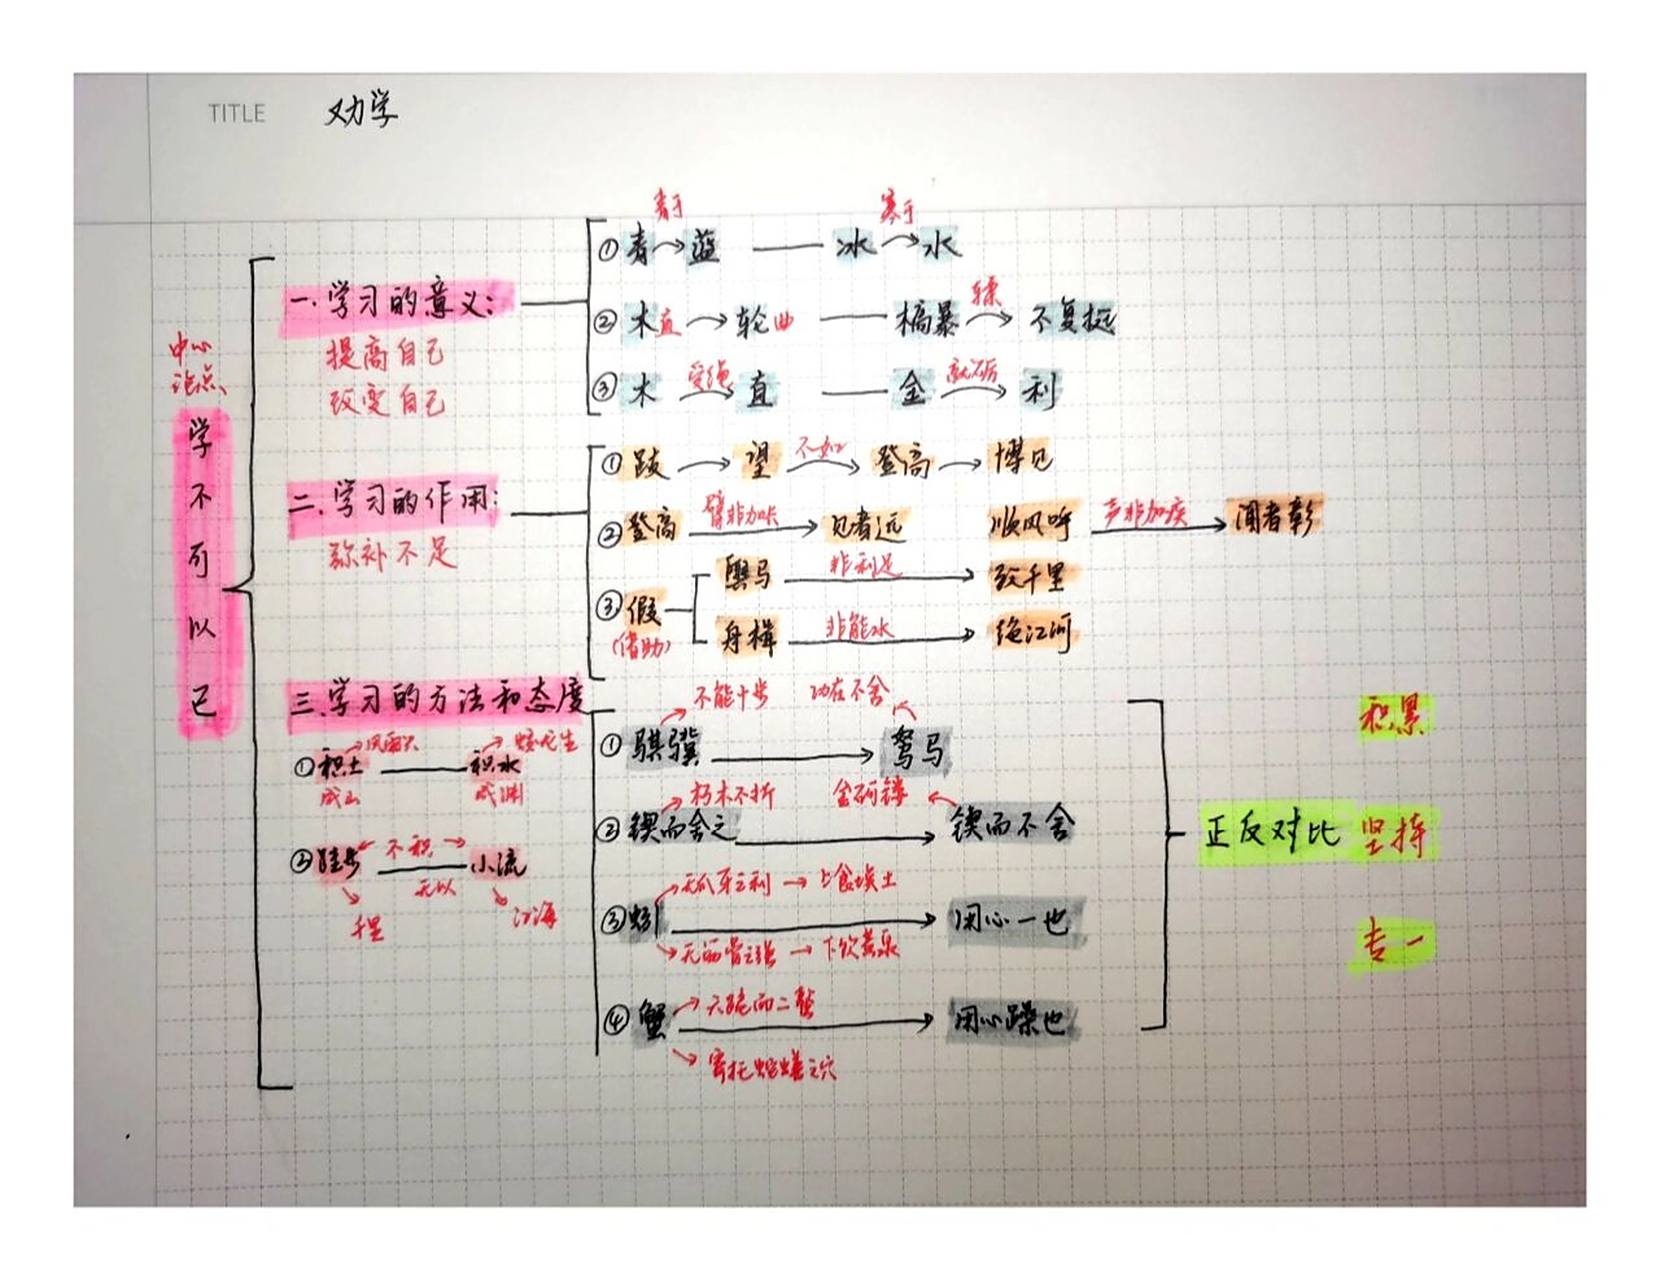 TITLE 劝学
中心
论点、
学不可以已
一.学习的意义:
提高自己
改变自己
青于 寒于
①青→蓝 —— 冰→水
𫐓
②木直→轮曲 —— 槁暴→不复挺
受绳 就砺
③木→直 —— 金→利
二.学习的作用:
弥补不足
不如
①跂→望→登高→博见
臂非加长 声非加疾
②登高→见者远 顺风呼→闻者彰
非利足
舆马→致千里
③假
(借助)
非能水
舟楫→绝江河
三.学习的方法和态度
→风雨兴 →蛟龙生
①积土——积水
成山 成渊
不积
②跬步——小流
无以
千里 江海
不能十步 功在不舍
①骐骥→驽马
朽木不折 金石可镂
②锲而舍之→锲而不舍
无爪牙之利→上食埃土
③蚓→用心一也
无筋骨之强→下饮黄泉
六跪而二螯
④蟹→用心躁也
寄托蛇蟮之穴
正反对比
积累
坚持
专一